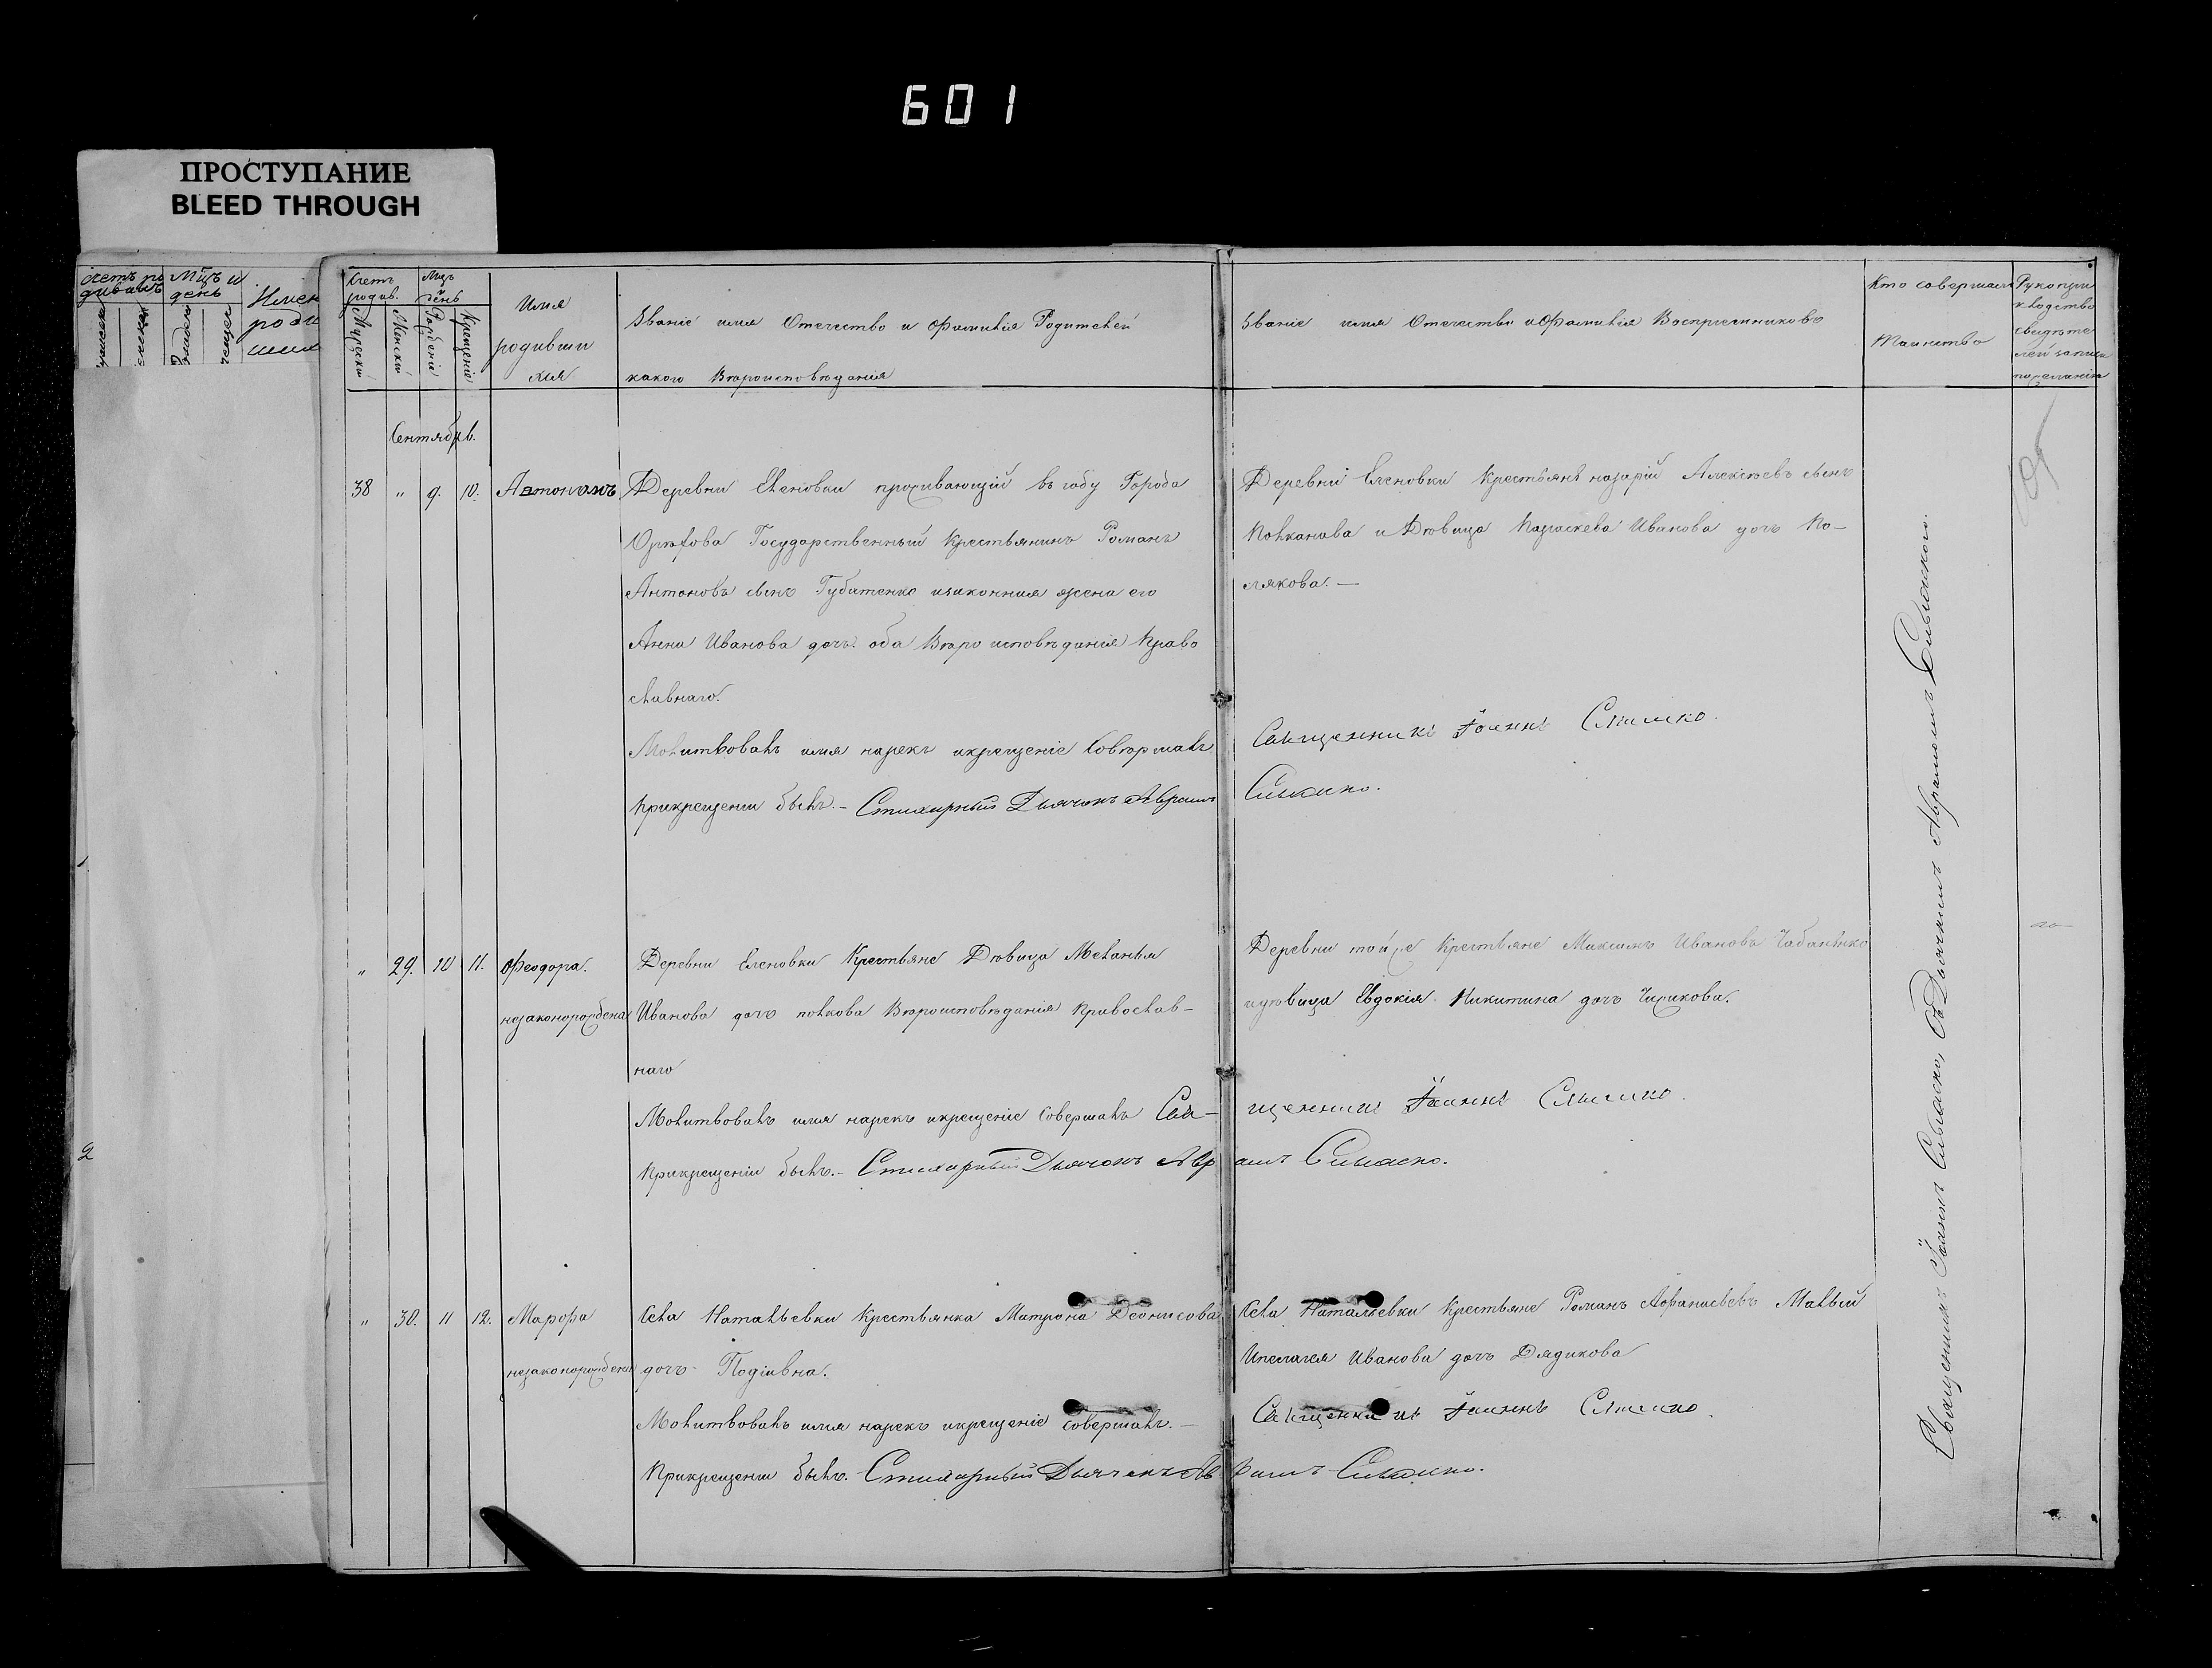 601
ПРОСТУПАНИЕ
BLEED THROUGH
Счетъ родив.
Мцъ день
Имя родивши хся
Званіе имя Отечество и фамилія Родителей
какого Вѣроисповѣданія
Званіе имя Отечество и фамилія Воспріемниковъ
Кто совершалъ
Таинство
Рукопри
кладство
свидѣте
лей записи
по желанію
Мужескій
Женскій
Рожденія
Крещенія
Сентябрь.
38 " 9. 10. Автономъ
Деревни Еленовки проживающій въ саду Города
Орѣхова Государственный Крестьянинъ Романъ
Антоновъ сынъ Губатенко изаконная жена его
Анна Иванова дочь оба Вѣро исповѣданія Право
славнаго.
Молитвовалъ имя нарекъ икрещеніе Совѣршалъ
Прикрещеніи былъ. - Стихарный Дьячокъ Аврамъ
Деревни Еленовки Крестьяне назарій Алексѣевъ сынъ
Полканова и Дѣвица Параскева Иванова дочь По-
лякова. —
Священникъ Іоаннъ
" 29. 10 11. Феодора.
незаконорождена
Деревни Еленовки Крестьяне Дѣвица Меланья
Иванова дочь полкова Вѣроисповѣданія Православ-
наго
Молитвовалъ имя нарекъ икрещеніе Совершалъ Свя-
Прикрещеніи былъ. - Стихарный Дьячокъ Авр
Деревни тойже Крестьяне Максимъ Ивановъ Чабаненко
идѣвица Евдокія Никитина дочь Чирикова.
щенникъ Іоаннъ
амъ
" 30. 11 12. Марфа
незаконорождена
Села Натальевки Крестьянка Матрона Деонисова
дочь Подіивна.
Молитвовалъ имя нарекъ икрещеніе совершалъ. —
Прикрещеніи былъ. - Стихарный Дьячекъ Ав
Села Натальевки Крестьяне Романъ Афанасьевъ Малый
Ипелагея Иванова дочь Дядикова
Священникъ Іоаннъ
рамъ
Священникъ Іоаннъ съ Дьячкомъ Аврамомъ
2